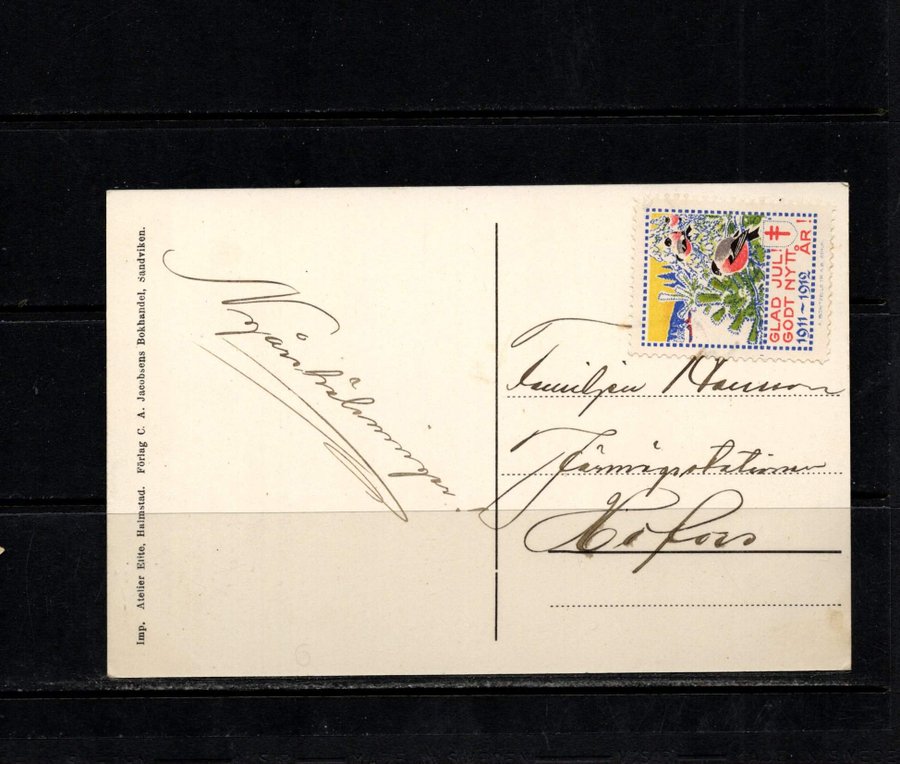 Imp. Atelier Elite, Halmstad. Förlag C. A. Jacobsens Bokhandel, Sandviken.
GLAD JUL!
GODT NYTT ÅR!
1911–1912
Familjen Hanson
Järnvägsstationen
Hofors